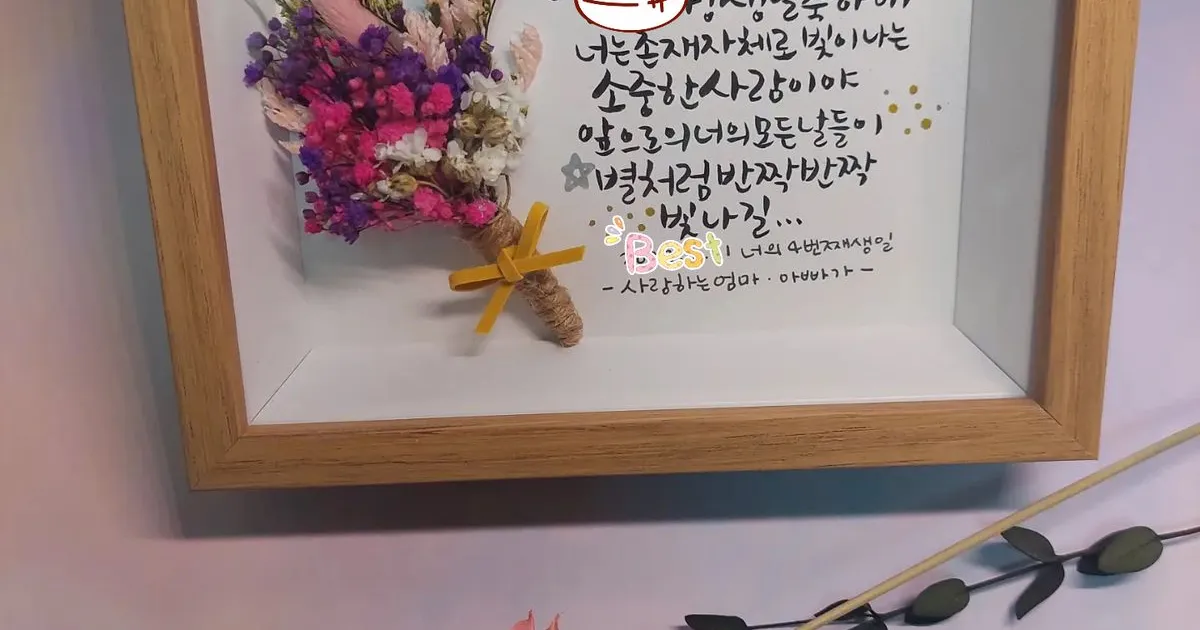 생일축하해
너는존재자체로빛이나는
소중한사람이야
앞으로의너의모든날들이
별처럼반짝반짝
빛나길...
Best 너의 4번째생일
- 사랑하는엄마 · 아빠가 -